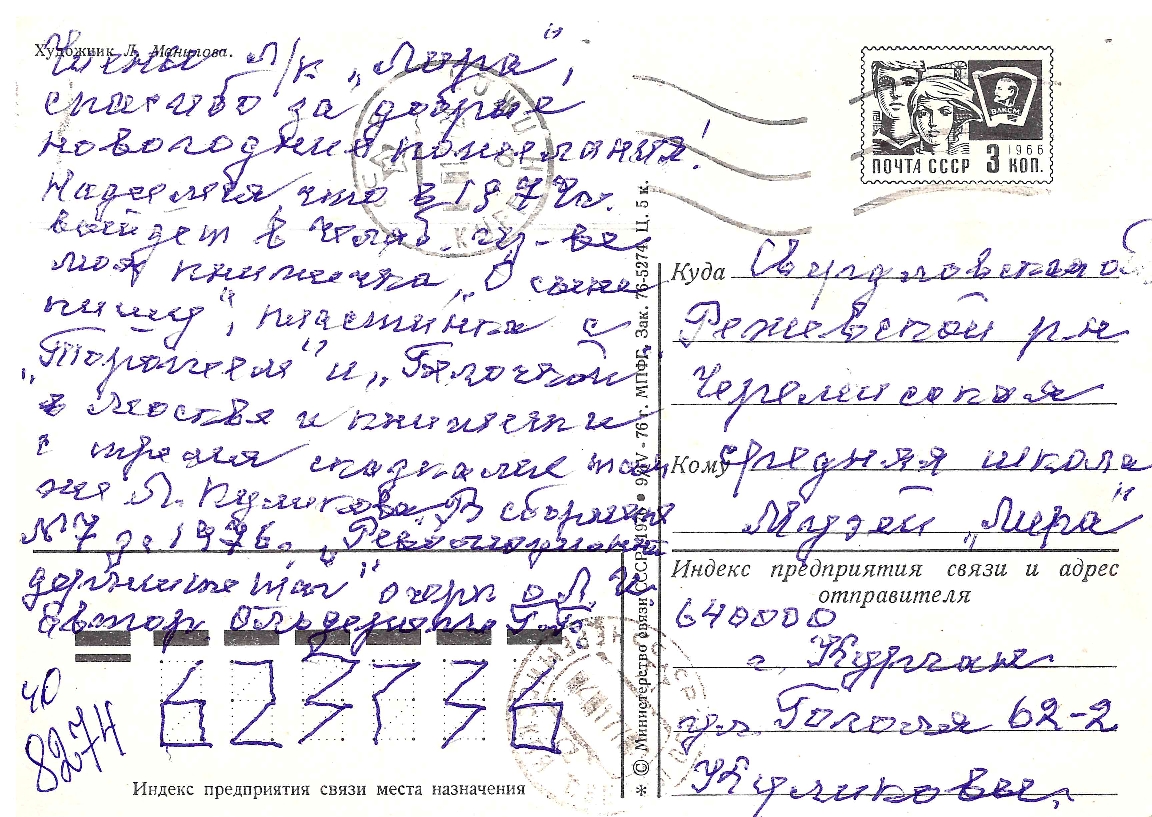 Художник Л. Манилова.
Члены Л/к „Лира",
спасибо за добрые
новогодние пожелания!
Надеемся, что в 1977 г.
выйдет в Челяб.
моя книжечка „О сыне
пишу", пластинка с
„Торопеем" и „Белочкой"
в Москве и книжечки
с тремя сказками
Л. Куликова. В сборнике
№ 7 за 1976 г. „Революционный
держите шаг" очерк о Л. И.
автор Ольдерогге Г. Б.
ПОЧТА СССР 3 КОП.
1966
ВЛКСМ
Куда Свердловская об
Режевской р-н
Черемисская
Кому средняя школа
Музей „Лира"
Индекс предприятия связи и адрес
отправителя
640000
г. Курган
ул. Гоголя 62-2
Куликовы.
623736
40
8274
Индекс предприятия связи места назначения
* © Министерство связи СССР, 197 • 9 IV - 76 г. МПФГ, Зак. 76-5274, Ц. 5 к.